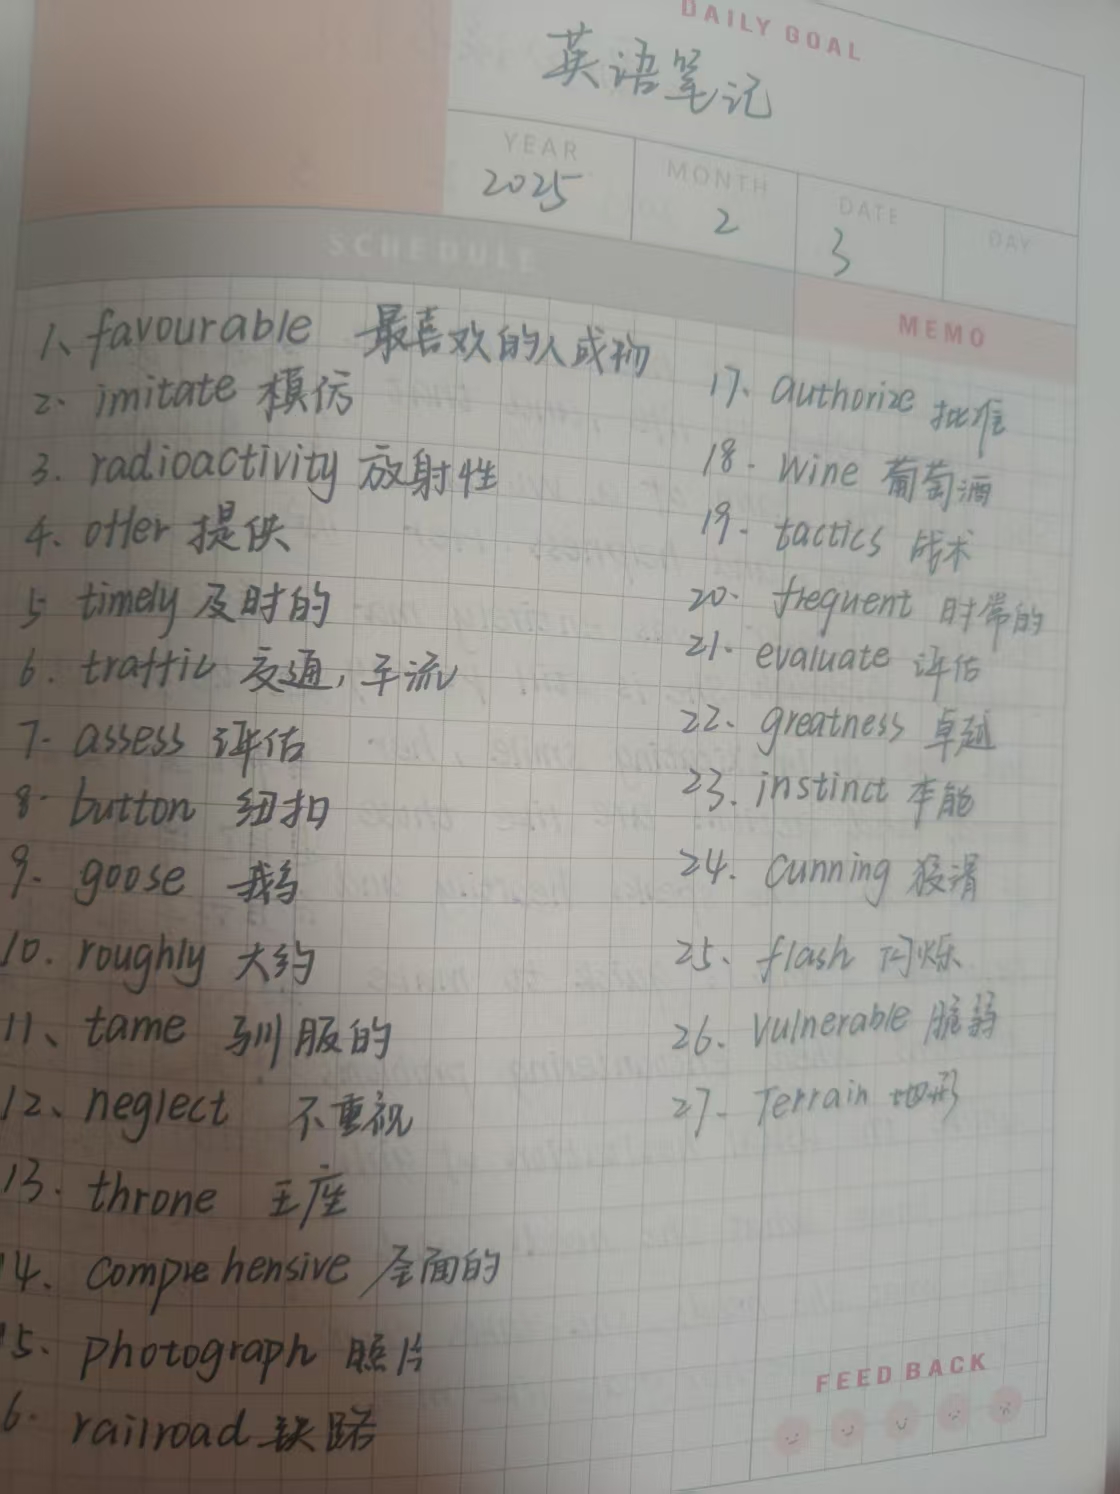 DAILY GOAL
英语笔记
YEAR
2025
MONTH
2
DATE
3
DAY
SCHEDULE
MEMO
1、favourable 最喜欢的人或物
2. imitate 模仿
3. radioactivity 放射性
4. offer 提供
5 timely 及时的
6. traffic 交通,车流
7. assess 评估
8. button 纽扣
9. goose 鹅
10. roughly 大约
11、tame 驯服的
12、neglect 不重视
13. throne 王座
14. comprehensive 全面的
15. photograph 照片
6. railroad 铁路
17. authorize 批准
18. wine 葡萄酒
19. tactics 战术
20. frequent 时常的
21. evaluate 评估
22. greatness 卓越
23. instinct 本能
24. cunning 狡猾
25. flash 闪烁
26. vulnerable 脆弱
27. Terrain 地形
FEED BACK